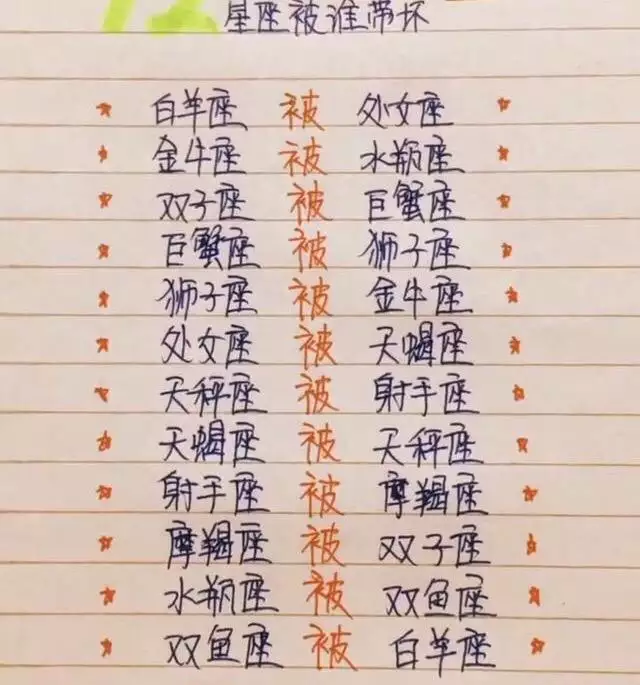 星座被谁带坏
白羊座 被 处女座
金牛座 被 水瓶座
双子座 被 巨蟹座
巨蟹座 被 狮子座
狮子座 被 金牛座
处女座 被 天蝎座
天秤座 被 射手座
天蝎座 被 天秤座
射手座 被 摩羯座
摩羯座 被 双子座
水瓶座 被 双鱼座
双鱼座 被 白羊座